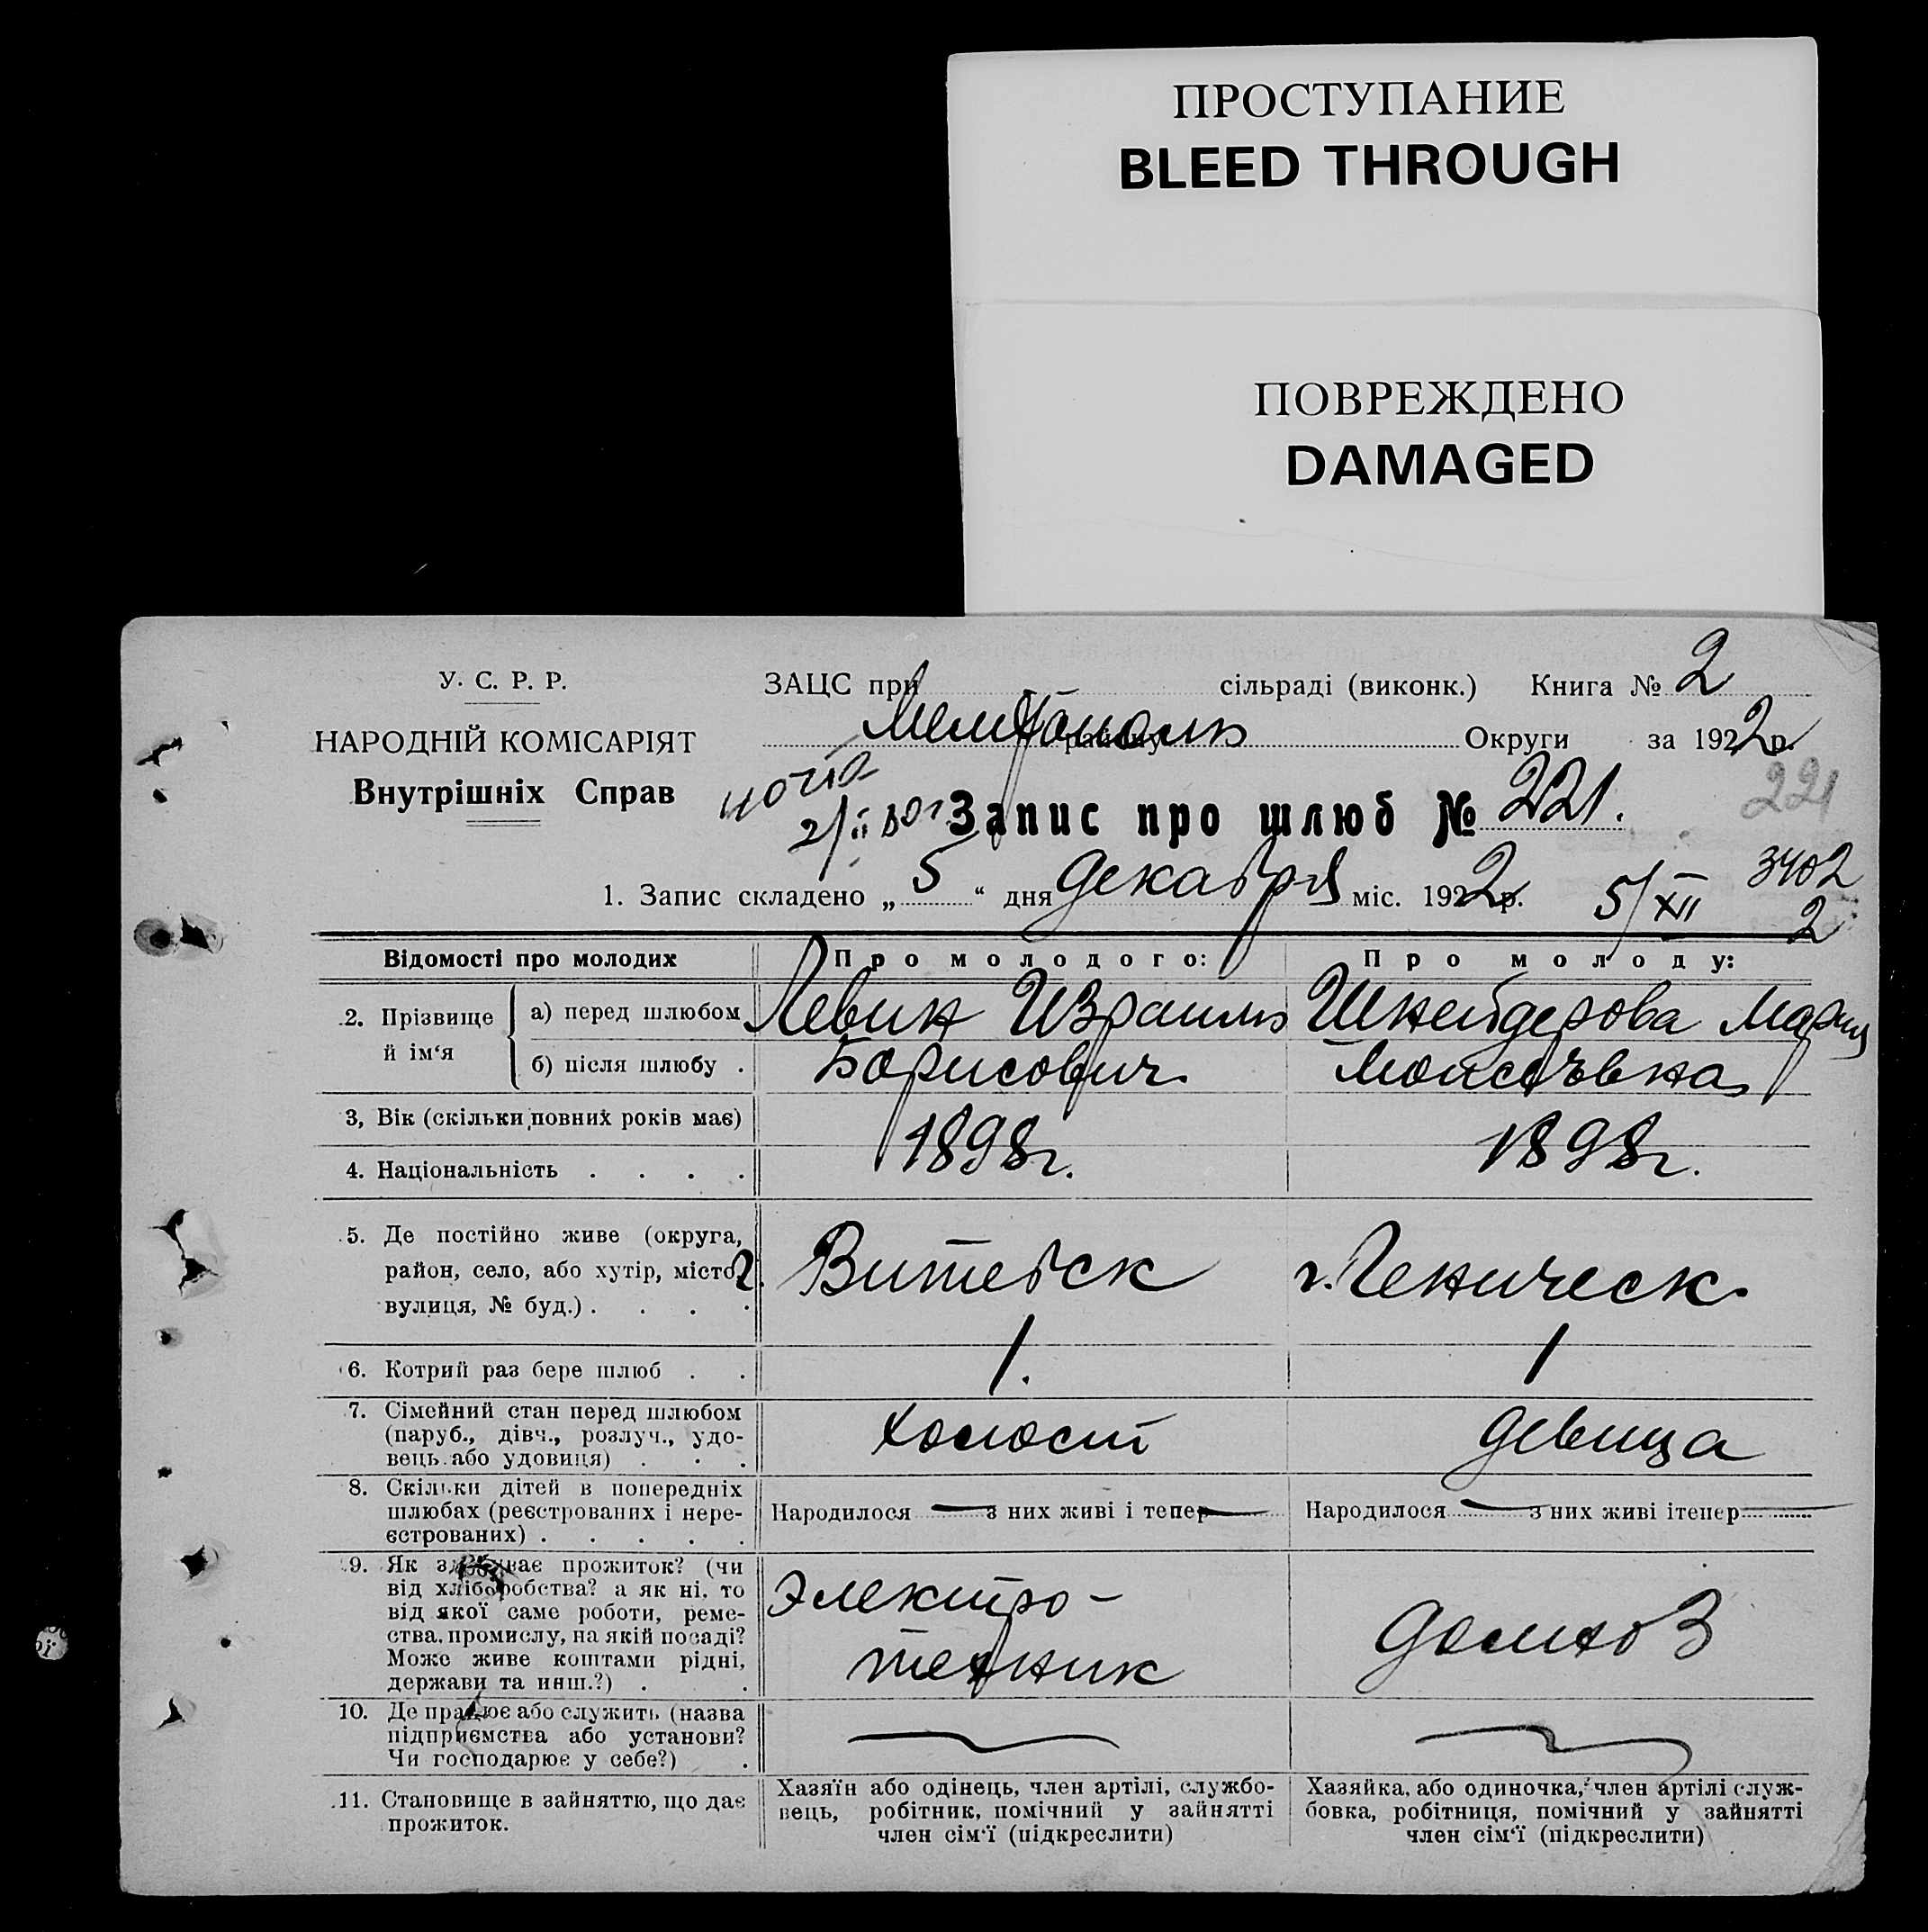 ПРОСТУПАНИЕ
BLEED THROUGH
ПОВРЕЖДЕНО
DAMAGED
У. С. Р. Р.
НАРОДНІЙ КОМІСАРІЯТ
Внутрішніх Справ
ЗАЦС при сільраді (виконк.) Книга № 2
Мелитополь району Округи за 1922 р.
2/II 80г.
Запис про шлюб № 221.
221
1. Запис складено „ 5 “ дня декабря міс. 1922 р. 5/XII
3402
2
Відомості про молодих
Про молодого:
Про молоду:
2. Прізвище й ім‘я
а) перед шлюбом
Левин Израиль
Шнейдерова Мария
б) після шлюбу .
Борисович
Моисеевна
3, Вік (скільки повних років має)
4. Національність . . . .
1898г.
1898г.
5. Де постійно живе (округа,
район, село, або хутір, місто
вулиця, № буд.) . . . .
г. Витебск
г. Геническ
6. Котрий раз бере шлюб . .
1.
1
7. Сімейний стан перед шлюбом
(паруб., дівч., розлуч., удо-
вець або удовиця) . . .
холост
девица
8. Скільки дітей в попередніх
шлюбах (реєстрованих і нере-
єстрованих) . . . . .
Народилося — з них живі і тепер —
Народилося — з них живі ітепер —
9. Як здобуває прожиток? (чи
від хліборобства? а як ні, то
від якої саме роботи, реме-
ства, промислу, на якій посаді?
Може живе коштами рідні,
держави та инш.?) . .
электро-
техник
домхоз
10. Де працює або служить (назва
підприємства або установи?
Чи господарює у себе?) .
11. Становище в зайняттю, що дає
прожиток.
Хазяїн або одінець, член артілі, службо-
вець, робітник, помічний у зайнятті
член сім‘ї (підкреслити)
Хазяйка, або одиночка, член артілі служ-
бовка, робітниця, помічний у зайнятті
член сім‘ї (підкреслити)